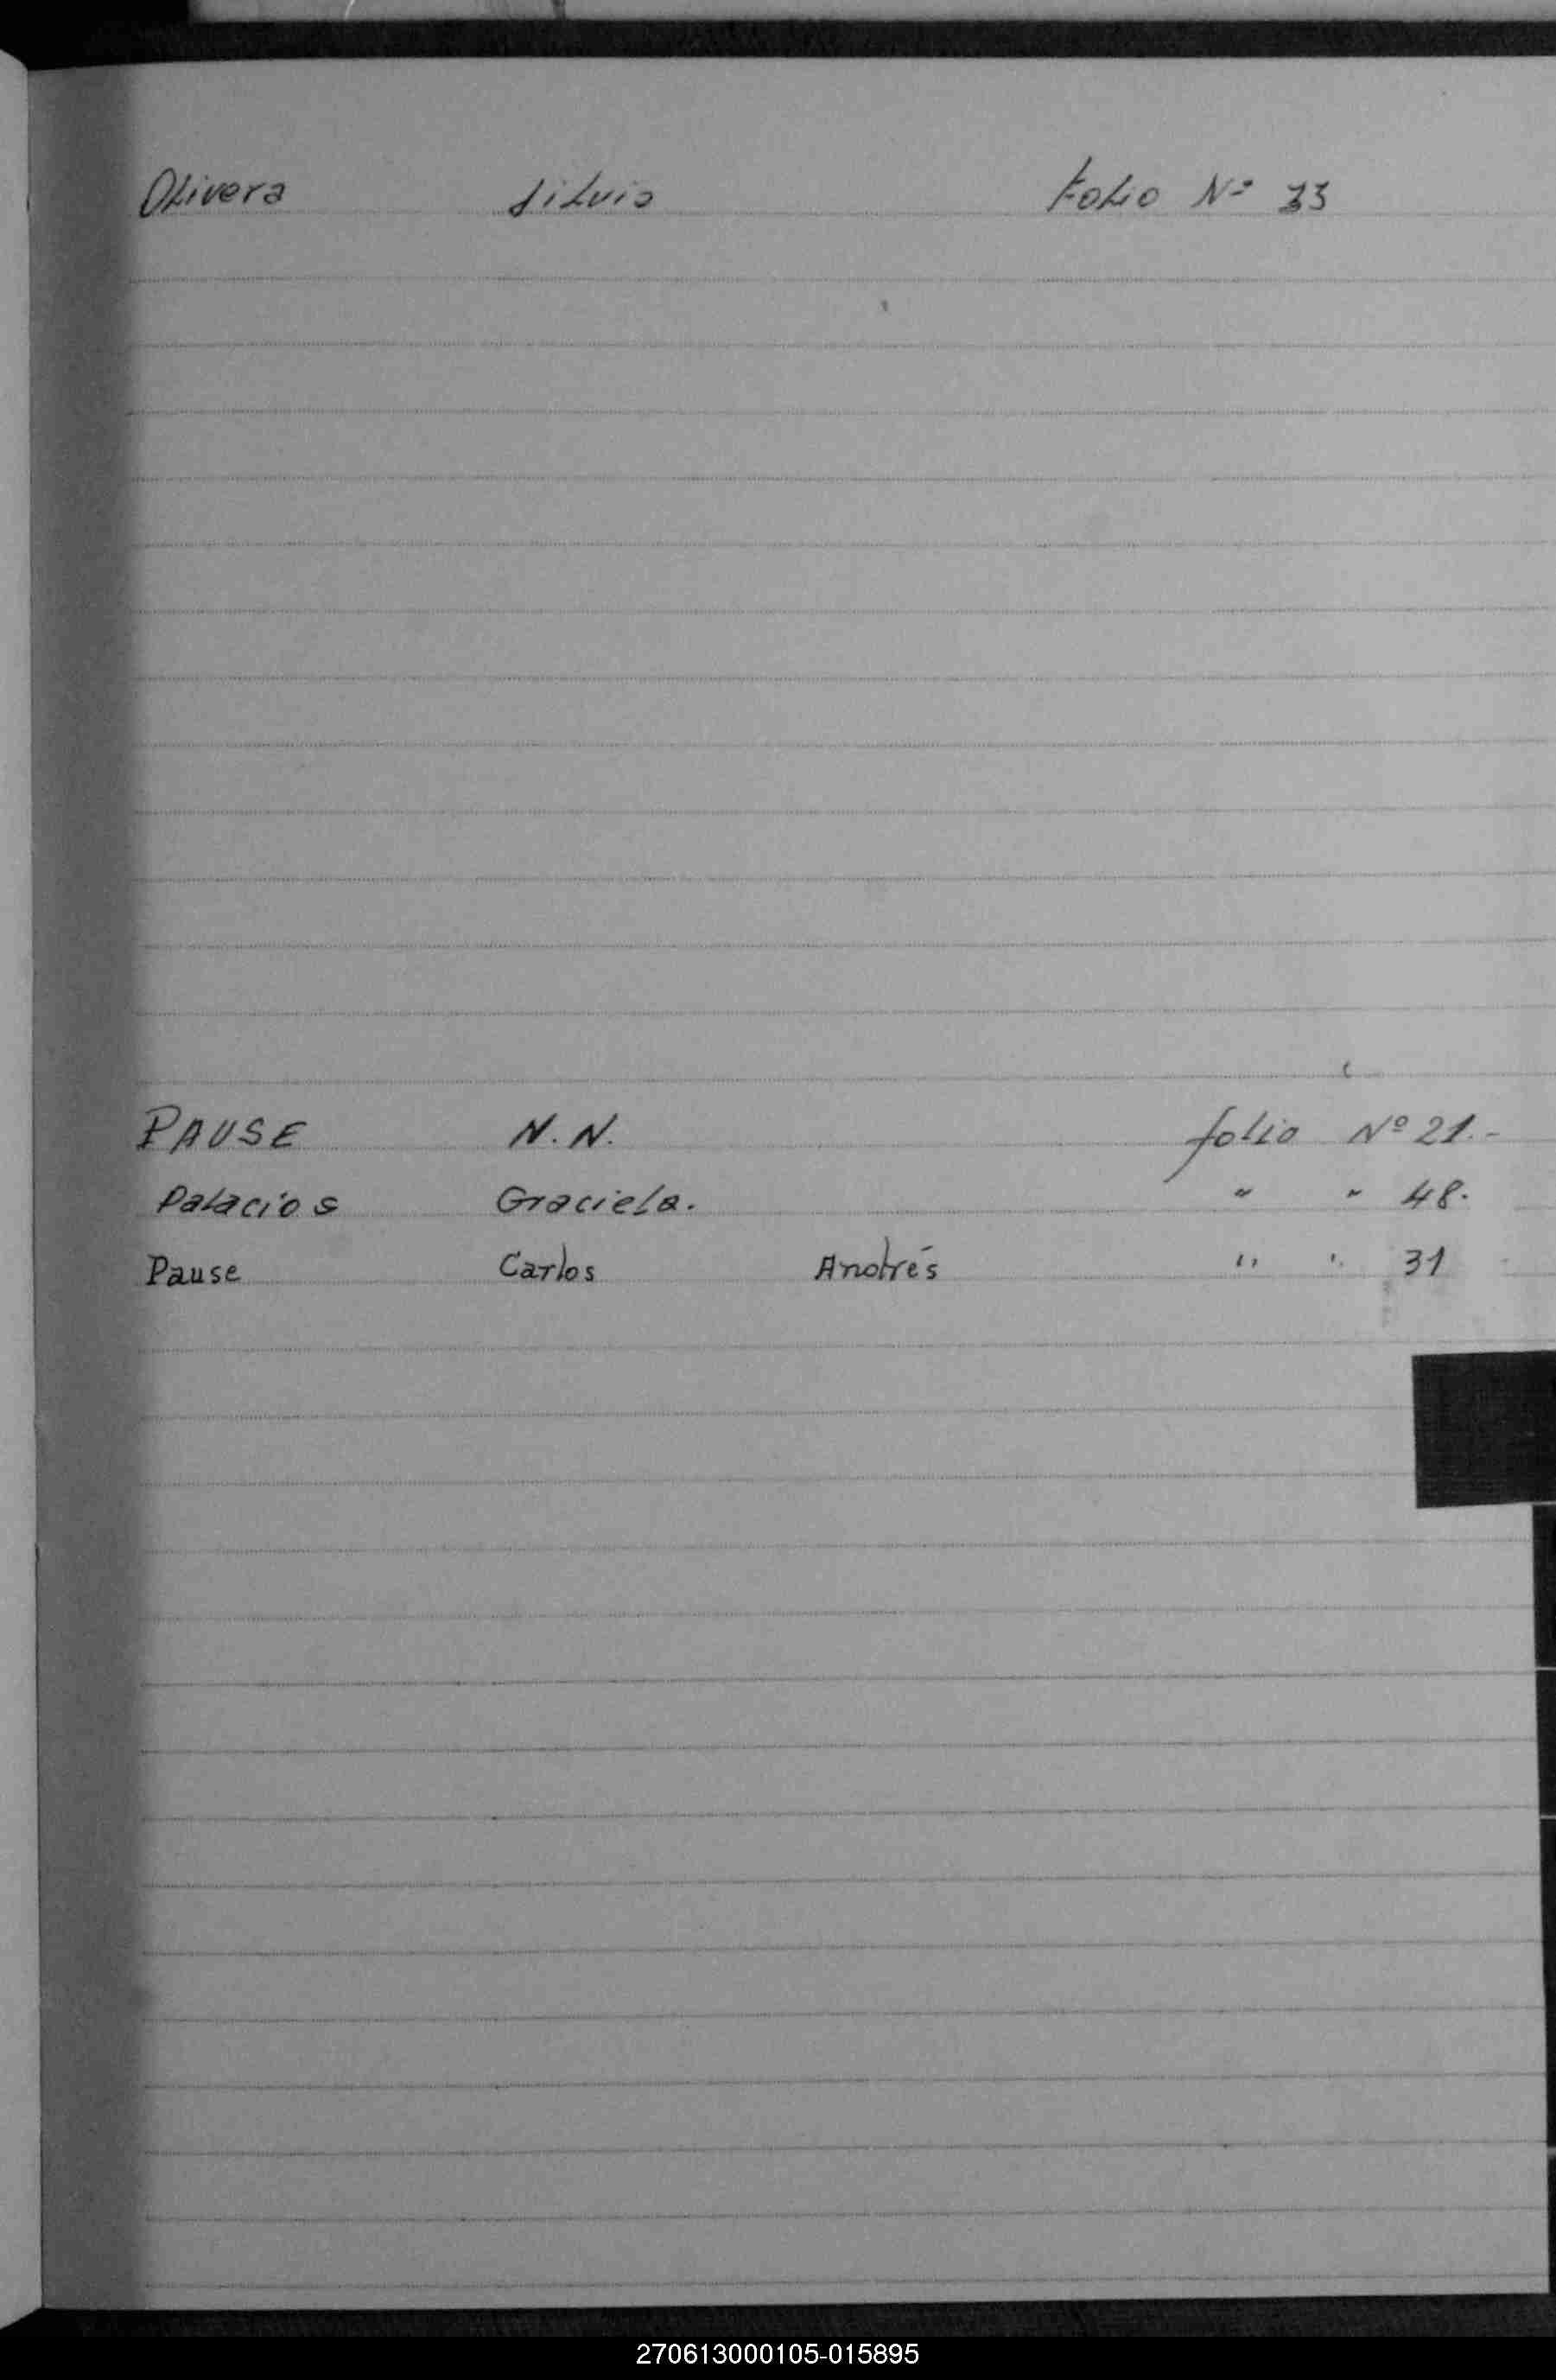 Olivera Silvia Folio Nº 33
PAUSE N.N. folio Nº 21.-
Palacios Graciela. " " 48.
Pause Carlos Andrés " " 31
270613000105-015895